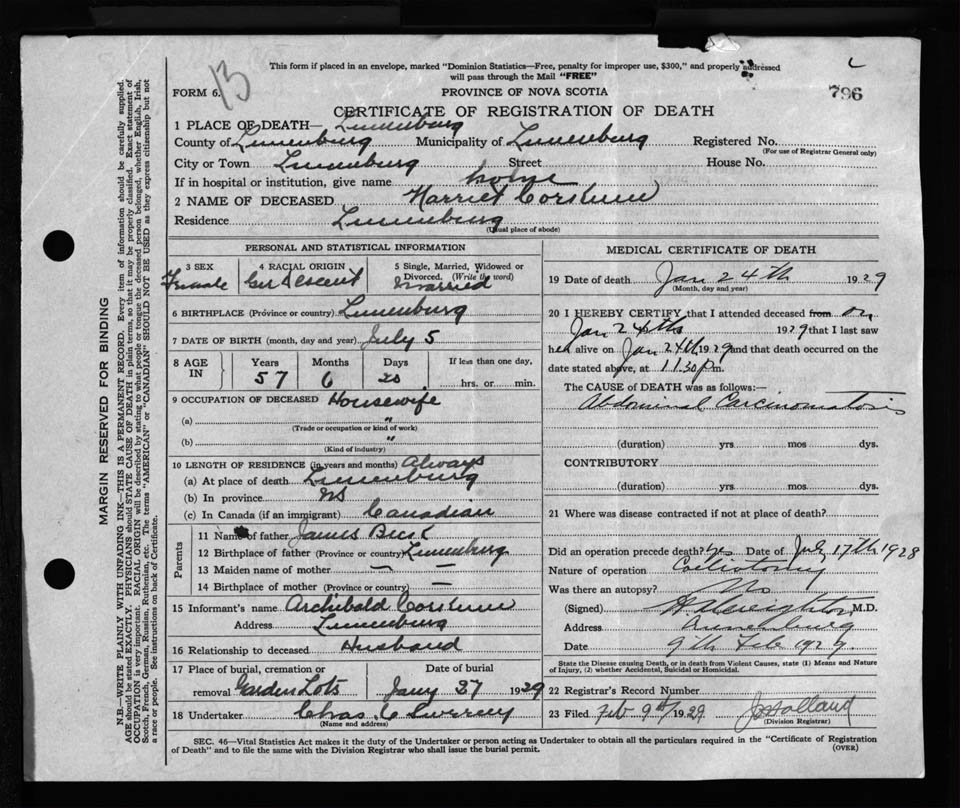 13
This form if placed in an envelope, marked "Dominion Statistics—Free, penalty for improper use, $300," and properly addressed
will pass through the Mail "FREE"
FORM 6.
PROVINCE OF NOVA SCOTIA
796
CERTIFICATE OF REGISTRATION OF DEATH
1 PLACE OF DEATH— Lunenburg
County of Lunenburg Municipality of Lunenburg Registered No.
(For use of Registrar General only)
City or Town Lunenburg Street House No.
If in hospital or institution, give name home
2 NAME OF DECEASED Harriet Corkum
Residence Lunenburg
(Usual place of abode)
PERSONAL AND STATISTICAL INFORMATION
3 SEX Female
4 RACIAL ORIGIN Ger Descent
5 Single, Married, Widowed or Divorced. (Write the word) Married
6 BIRTHPLACE (Province or country) Lunenburg
7 DATE OF BIRTH (month, day and year) July 5
8 AGE IN Years 57 Months 6 Days 20 If less than one day, hrs. or min.
9 OCCUPATION OF DECEASED Housewife
(a) "
(Trade or occupation or kind of work)
(b) "
(Kind of industry)
10 LENGTH OF RESIDENCE (in years and months) Always
(a) At place of death Lunenburg
(b) In province NS
(c) In Canada (if an immigrant) Canadian
Parents
11 Name of father James Beck
12 Birthplace of father (Province or country) Lunenburg
13 Maiden name of mother — —
14 Birthplace of mother (Province or country) —
15 Informant's name Archibald Corkum
Address Lunenburg
16 Relationship to deceased Husband
17 Place of burial, cremation or removal Garden Lots
Date of burial Jany 27 1929
18 Undertaker Chas C
(Name and address)
MEDICAL CERTIFICATE OF DEATH
19 Date of death Jan 24th 1929
(Month, day and year)
20 I HEREBY CERTIFY that I attended deceased from on
Jan 24th 1929 that I last saw
her alive on Jan 24th 1929 and that death occurred on the
date stated above, at 11.30 p.m.
The CAUSE OF DEATH was as follows:—
Abdominal Carcinomatosis
(duration) yrs mos dys.
CONTRIBUTORY
(duration) yrs. mos. dys.
21 Where was disease contracted if not at place of death?
Did an operation precede death? yes Date of July 17th 1928
Nature of operation Coeliotomy
Was there an autopsy? No
(Signed) M.D.
Address Lunenburg
Date 9th Feb 1929.
State the Disease causing Death, or in death from Violent Causes, state (1) Means and Nature
of Injury, (2) whether Accidental, Suicidal or Homicidal.
22 Registrar's Record Number
23 Filed Feb 9th 1929 Holland
(Division Registrar)
SEC. 46—Vital Statistics Act makes it the duty of the Undertaker or person acting as Undertaker to obtain all the particulars required in the "Certificate of Registration
of Death" and to file the same with the Division Registrar who shall issue the burial permit.
(OVER)
MARGIN RESERVED FOR BINDING
N.B.—WRITE PLAINLY WITH UNFADING INK—THIS IS A PERMANENT RECORD. Every item of information should be carefully supplied.
AGE should be stated EXACTLY. PHYSICIANS should STATE CAUSE OF DEATH in plain terms, so that it may be properly classified. Exact statement of
OCCUPATION is very important. RACIAL ORIGIN will be described by stating to what people or tongue the deceased person belonged, whether English, Irish,
Scotch, French, German, Russian, Ruthenian, etc. The terms "AMERICAN" or "CANADIAN" SHOULD NOT BE USED as they express citizenship but not
a race or people. See instructions on back of Certificate.